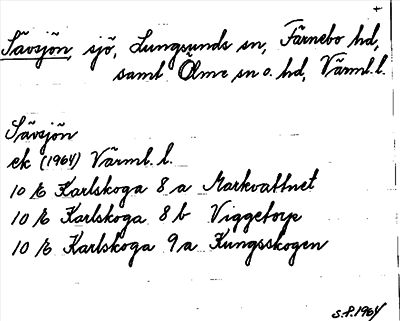 Sävsjön, sjö, Lungsunds sn, Färnebo hd,
samt Ölme sn o. hd, Värml. l.
Sävsjön
ek (1964) Värml. l.
10 E Karlskoga 8 a Markvattnet
10 E Karlskoga 8 b Viggetorp
10 E Karlskoga 9 a Kungsskogen
S.P. 1964